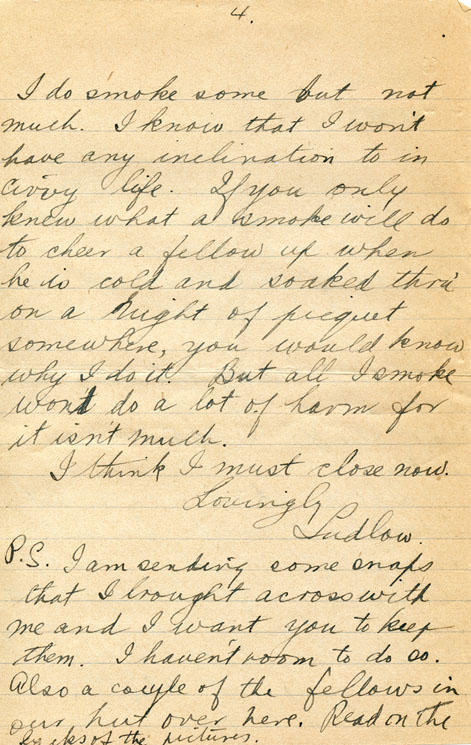 4.
I do smoke some but not
much. I know that I won't
have any inclination to in
civvy life. If you only
knew what a smoke will do
to cheer a fellow up when
he is cold and soaked thru'
on a night of picquet
somewhere, you would know
why I do it. But all I smoke
wont do a lot of harm for
it isn't much.
I think I must close now.
Lovingly
Ludlow.
P.S. I am sending some snaps
that I brought across with
me and I want you to keep
them. I havent room to do so.
Also a couple of the fellows in
our hut over here. Read on the
backs of the pictures.